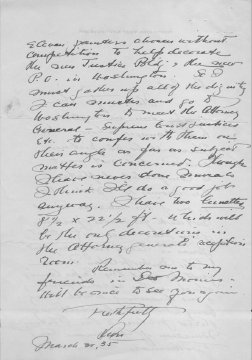 Eleven painters chosen without
competition to help decorate
the new Justice Bldg, & the new
P.O. in Washington. So I
must gather up all of the dignity
I can muster and go to
Washington to meet the Attorney
General – Supreme Court Justices
Etc to confer with them on
their angle as far as subject
matter is concerned. Though
I have never done murals
I think I'll do a good job
anyway. I have two lunettes
8½ x 22½ ft. which will
be the only decorations in
the Attorney General's reception
room.
Remember me to my
friends in Des Moines.
Will be nice to see you again
Faithfully
March 20, 35